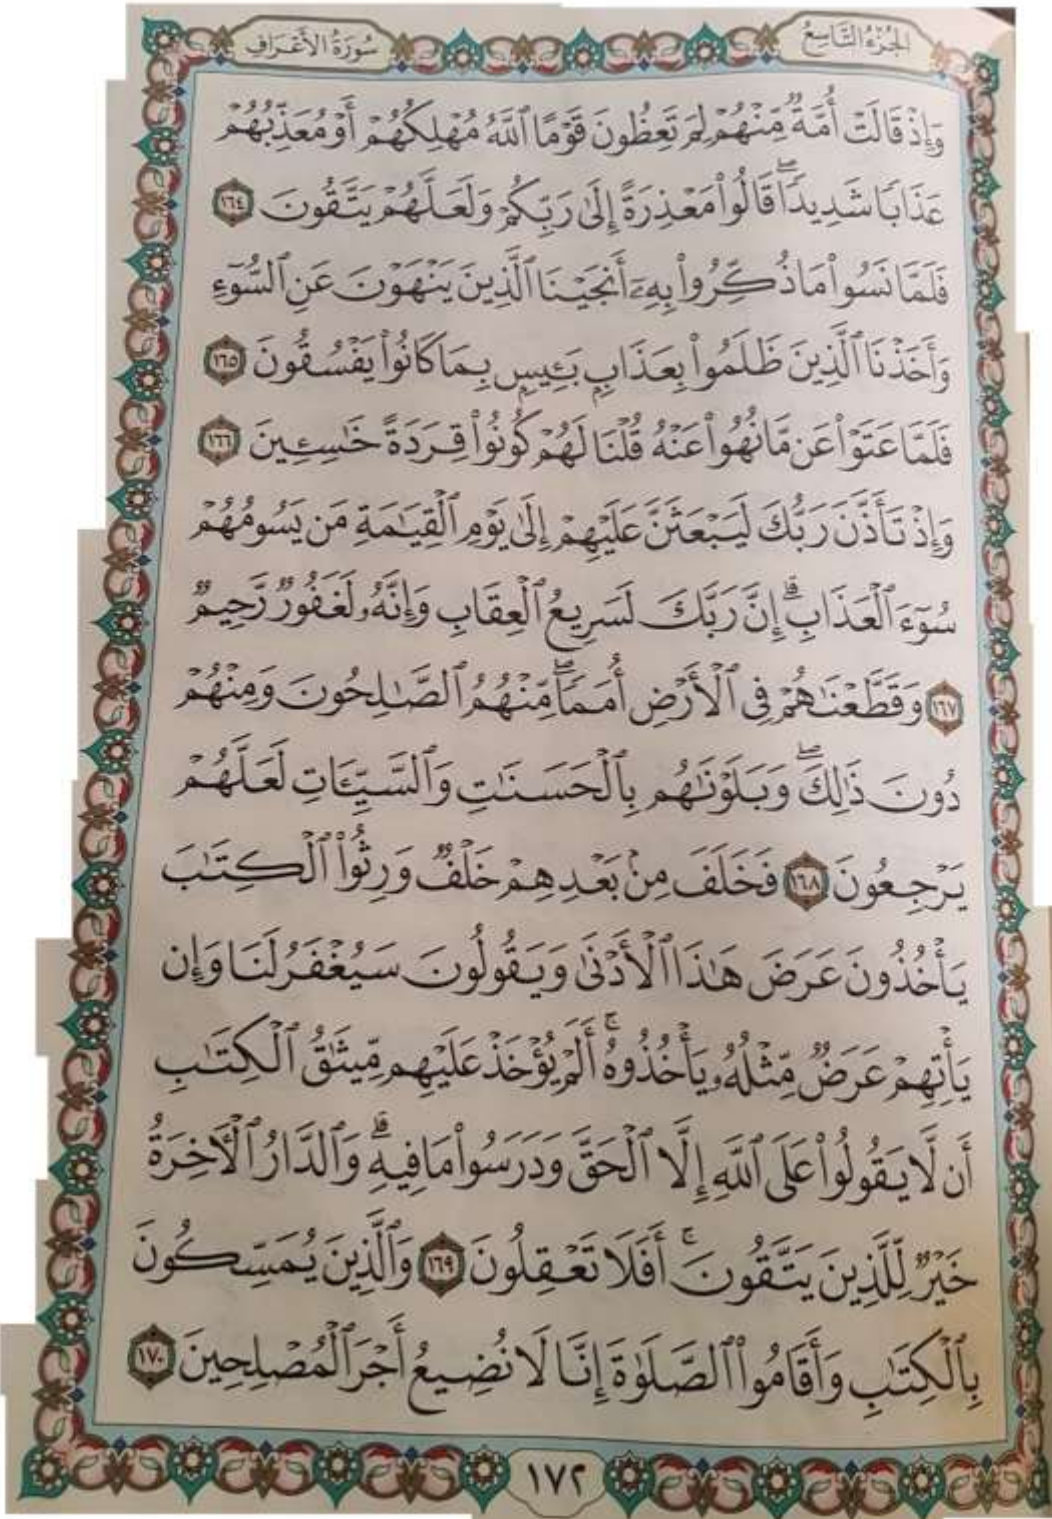 الجُزْءُ التَّاسِعُ سُورَةُ الأَعْرَافِ
وَإِذْ قَالَتْ أُمَّةٌ مِّنْهُمْ لِمَ تَعِظُونَ قَوْمًا ٱللَّهُ مُهْلِكُهُمْ أَوْ مُعَذِّبُهُمْ
عَذَابًا شَدِيدًاۖ قَالُوا۟ مَعْذِرَةً إِلَىٰ رَبِّكُمْ وَلَعَلَّهُمْ يَتَّقُونَ ١٦٤
فَلَمَّا نَسُوا۟ مَا ذُكِّرُوا۟ بِهِۦٓ أَنجَيْنَا ٱلَّذِينَ يَنْهَوْنَ عَنِ ٱلسُّوٓءِ
وَأَخَذْنَا ٱلَّذِينَ ظَلَمُوا۟ بِعَذَابٍۭ بَـِٔيسٍۭ بِمَا كَانُوا۟ يَفْسُقُونَ ١٦٥
فَلَمَّا عَتَوْا۟ عَن مَّا نُهُوا۟ عَنْهُ قُلْنَا لَهُمْ كُونُوا۟ قِرَدَةً خَـٰسِـِٔينَ ١٦٦
وَإِذْ تَأَذَّنَ رَبُّكَ لَيَبْعَثَنَّ عَلَيْهِمْ إِلَىٰ يَوْمِ ٱلْقِيَـٰمَةِ مَن يَسُومُهُمْ
سُوٓءَ ٱلْعَذَابِۗ إِنَّ رَبَّكَ لَسَرِيعُ ٱلْعِقَابِ وَإِنَّهُۥ لَغَفُورٌ رَّحِيمٌ
١٦٧ وَقَطَّعْنَـٰهُمْ فِى ٱلْأَرْضِ أُمَمًاۖ مِّنْهُمُ ٱلصَّـٰلِحُونَ وَمِنْهُمْ
دُونَ ذَٰلِكَۖ وَبَلَوْنَـٰهُم بِٱلْحَسَنَـٰتِ وَٱلسَّيِّـَٔاتِ لَعَلَّهُمْ
يَرْجِعُونَ ١٦٨ فَخَلَفَ مِنۢ بَعْدِهِمْ خَلْفٌ وَرِثُوا۟ ٱلْكِتَـٰبَ
يَأْخُذُونَ عَرَضَ هَـٰذَا ٱلْأَدْنَىٰ وَيَقُولُونَ سَيُغْفَرُ لَنَا وَإِن
يَأْتِهِمْ عَرَضٌ مِّثْلُهُۥ يَأْخُذُوهُۚ أَلَمْ يُؤْخَذْ عَلَيْهِم مِّيثَـٰقُ ٱلْكِتَـٰبِ
أَن لَّا يَقُولُوا۟ عَلَى ٱللَّهِ إِلَّا ٱلْحَقَّ وَدَرَسُوا۟ مَا فِيهِۗ وَٱلدَّارُ ٱلْـَٔاخِرَةُ
خَيْرٌ لِّلَّذِينَ يَتَّقُونَۚ أَفَلَا تَعْقِلُونَ ١٦٩ وَٱلَّذِينَ يُمَسِّكُونَ
بِٱلْكِتَـٰبِ وَأَقَامُوا۟ ٱلصَّلَوٰةَ إِنَّا لَا نُضِيعُ أَجْرَ ٱلْمُصْلِحِينَ ١٧٠
١٧٢